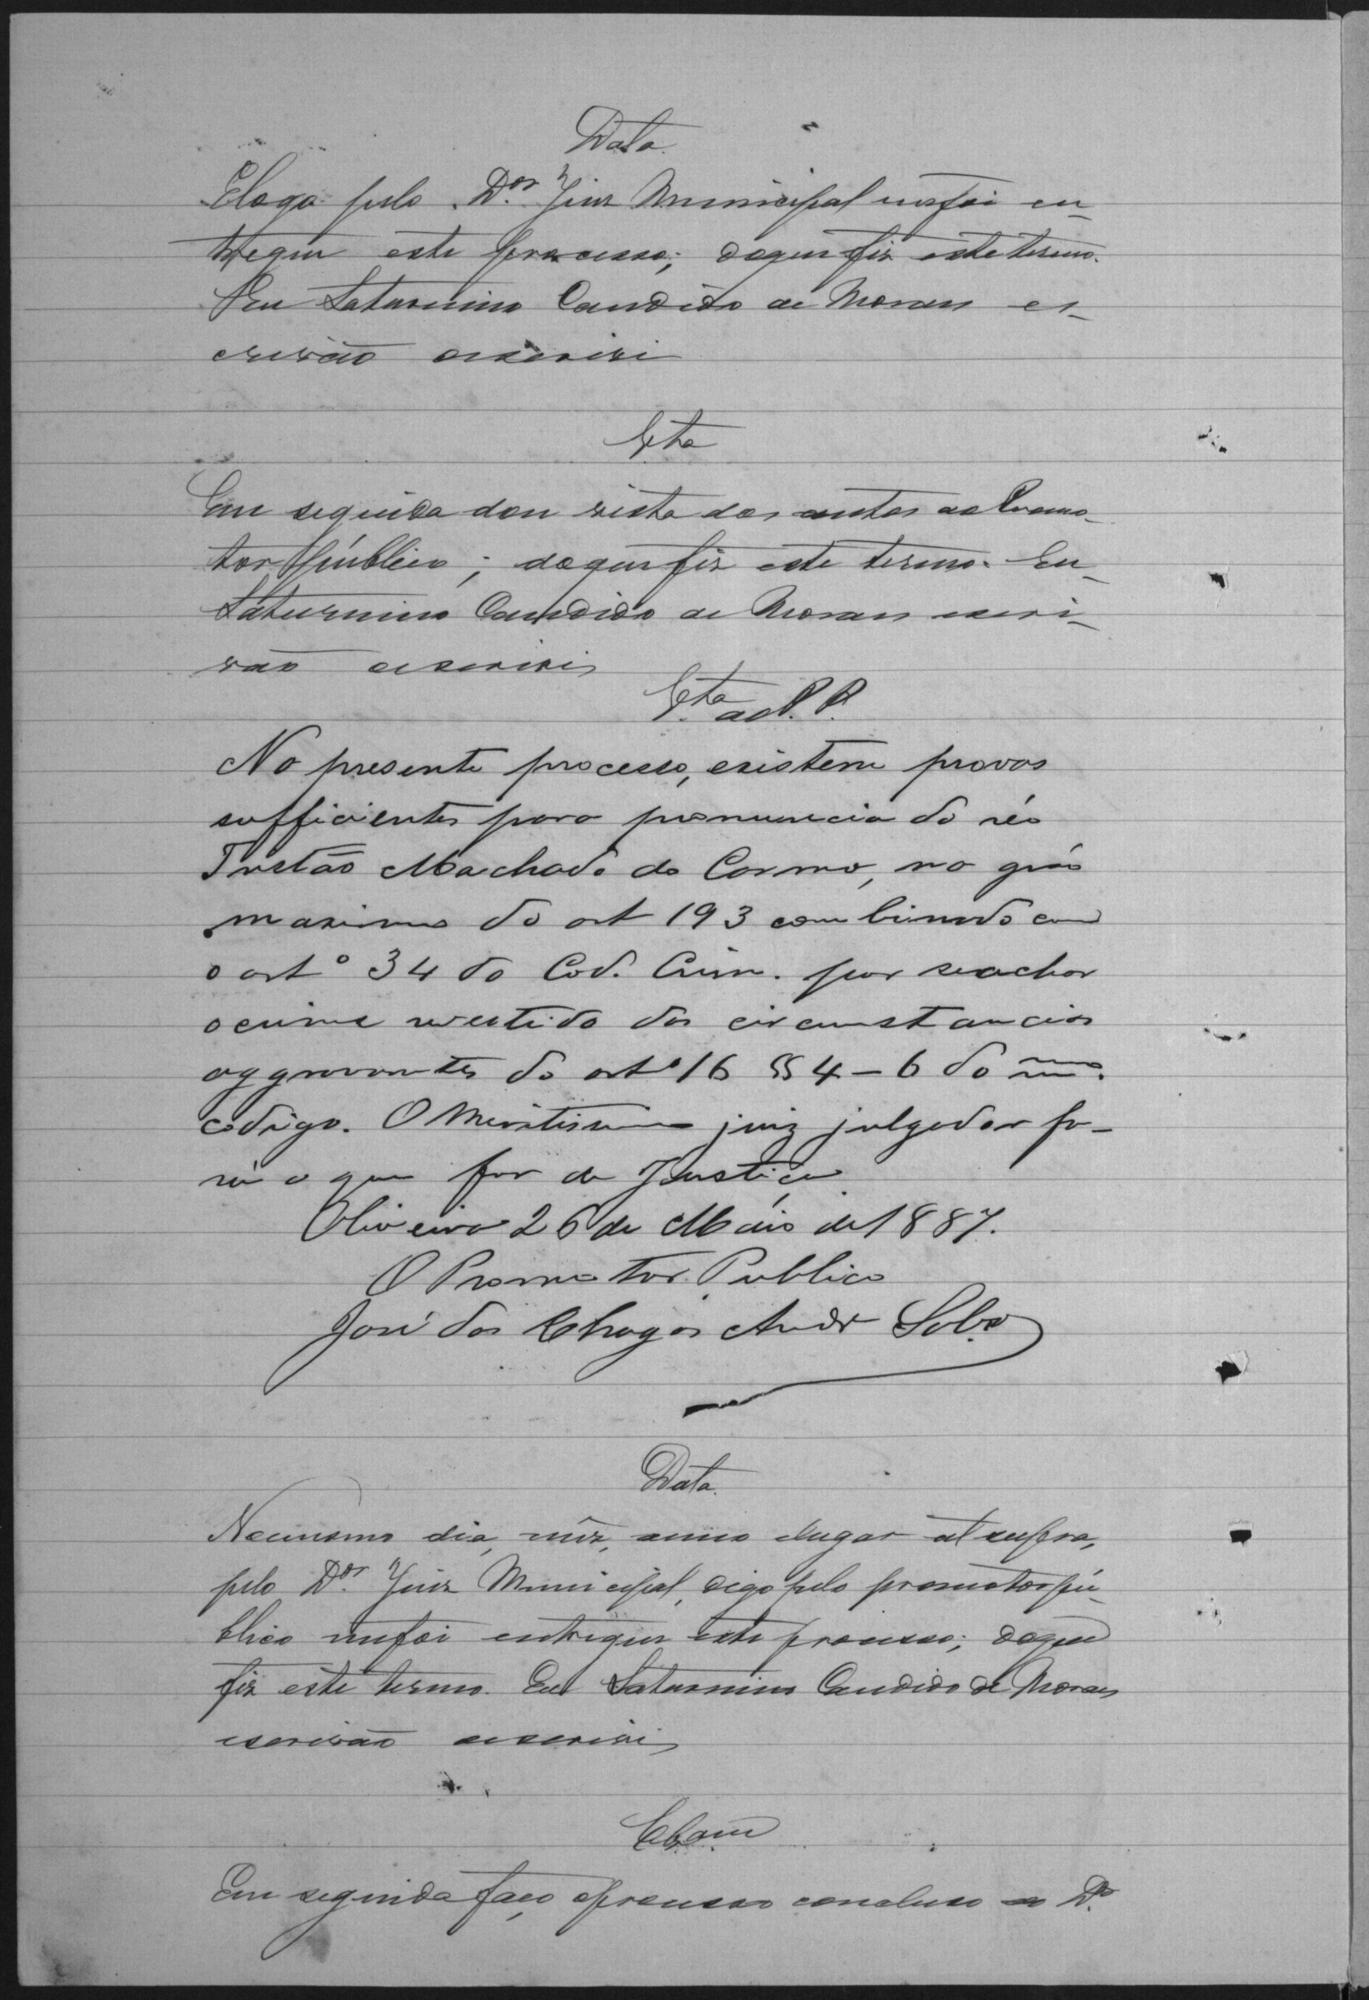 Data.
Elogo pelo Dor Juiz Municipal me foi en-
tregue este processo; doque fiz este termo.
Eu Saturnino Candido de Moraes es-
crivão oescrivi
Vta
Em seguida dou vista dos autos ao Promo-
tor público; doque fiz este termo. Eu
Saturnino Candido de Moraes escri-
vão oescrivi
Vta ao P. P.
No presente processo, existem provas
sufficientes para pronuncia do réo
Tristão Machado do Carmo, no gráo
maximo do art 193 combinado com
o arto 34 do Cod. Crim. por se achar
o crime revestido das circumstancias
aggravantes do arto 16 §§ 4 - 6 do mmo
codigo. O Meritissimo juiz julgador fa-
rá o que for de Justiça
Oliveira 26 de Maio de 1887.
O Promotor Publico
José das Chagas Andr Sobo
Data.
No mesmo dia, mez, anno elugar atrasupra,
pelo Dor Juiz Municipal, digo pelo promotor pú-
blico me foi entregue este processo; doque
fiz este termo. Eu Saturnino Candido de Moraes
escrivão oescrivi
Clsam
Em seguida faço oprocesso concluso ao Dr